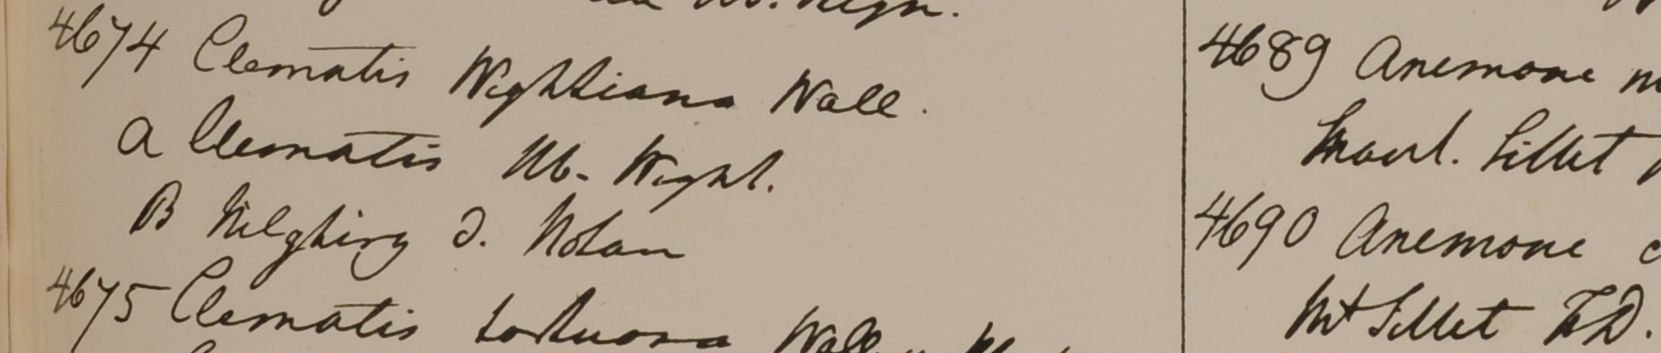 4674 Clematis Wightiana Wall.
a Clematis Hb. Wight.
B Nilghiry D. Notan
4675 Clematis tortuosa Wall
4689 Anemone
Sillet
4690 Anemone c
Mt Sillet F.D.